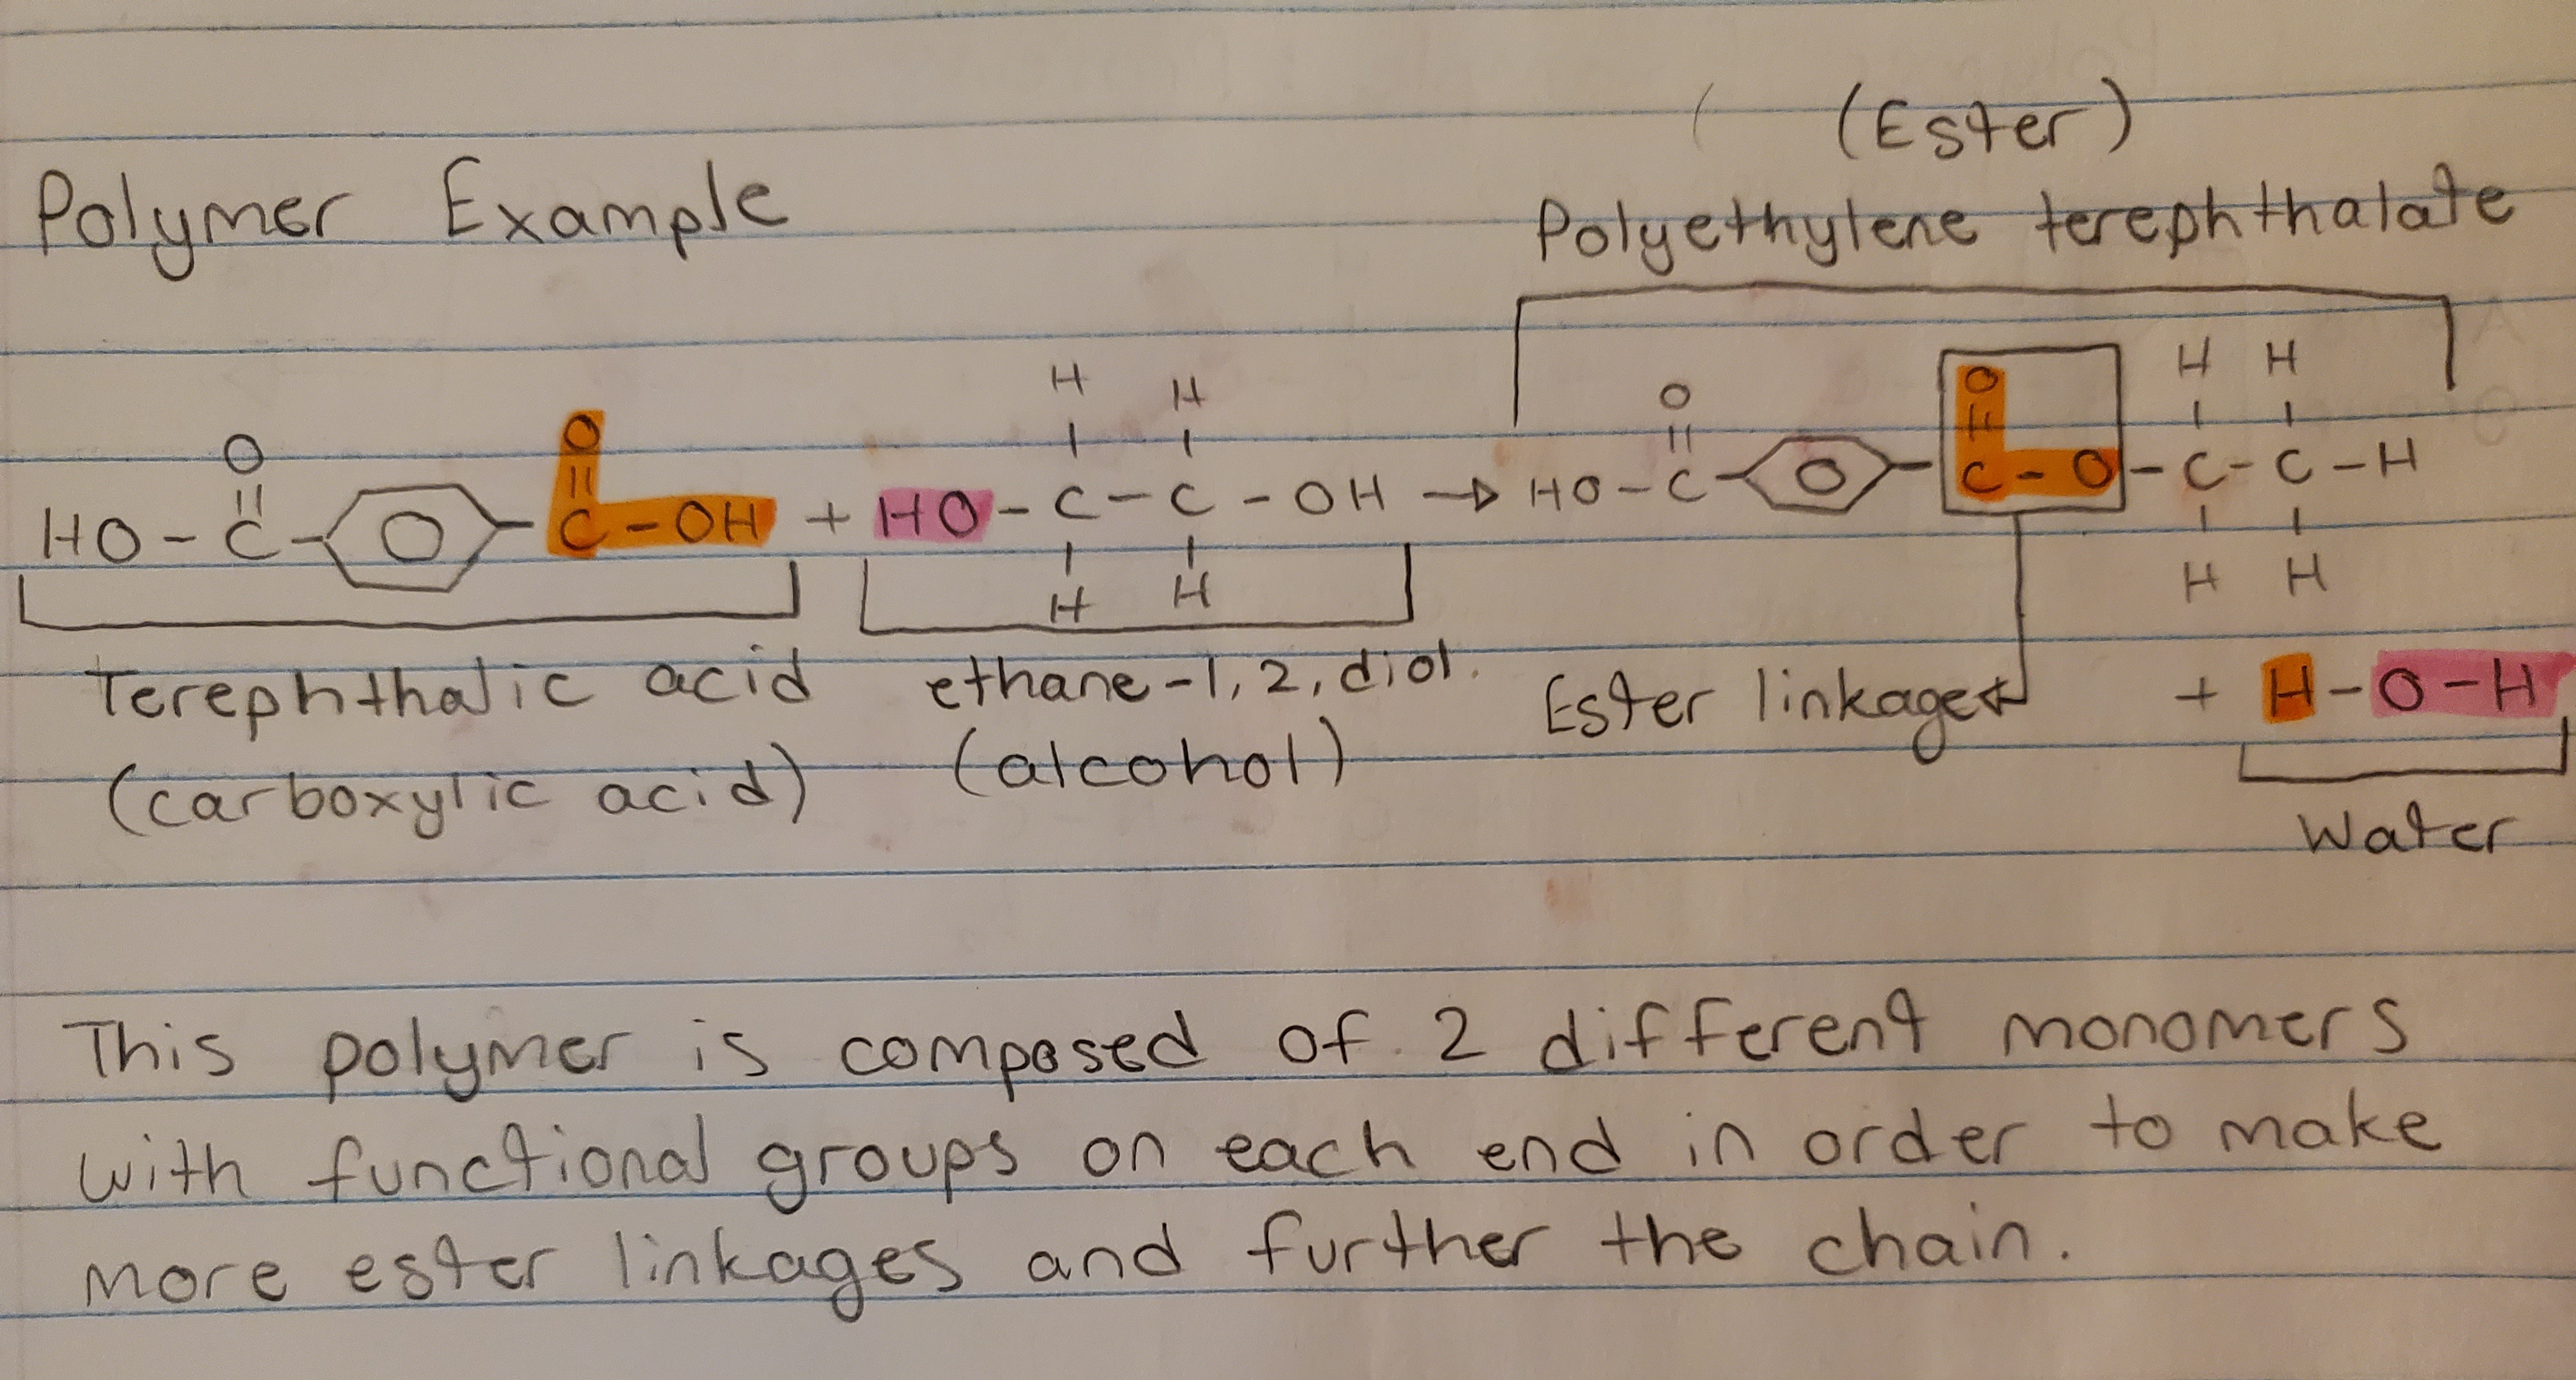 (Ester)
Polymer Example
Polyethylene terephthalate
H H
H H
O O
O O
HO-C C-OH + HO-C-C-OH → HO-C C-O-C-C-H
O
O
H H
H H
Terephthalic acid ethane-1,2,diol.
Ester linkage
+ H-O-H
(carboxylic acid) (alcohol)
Water
This polymer is composed of 2 different monomers
with functional groups on each end in order to make
more ester linkages and further the chain.